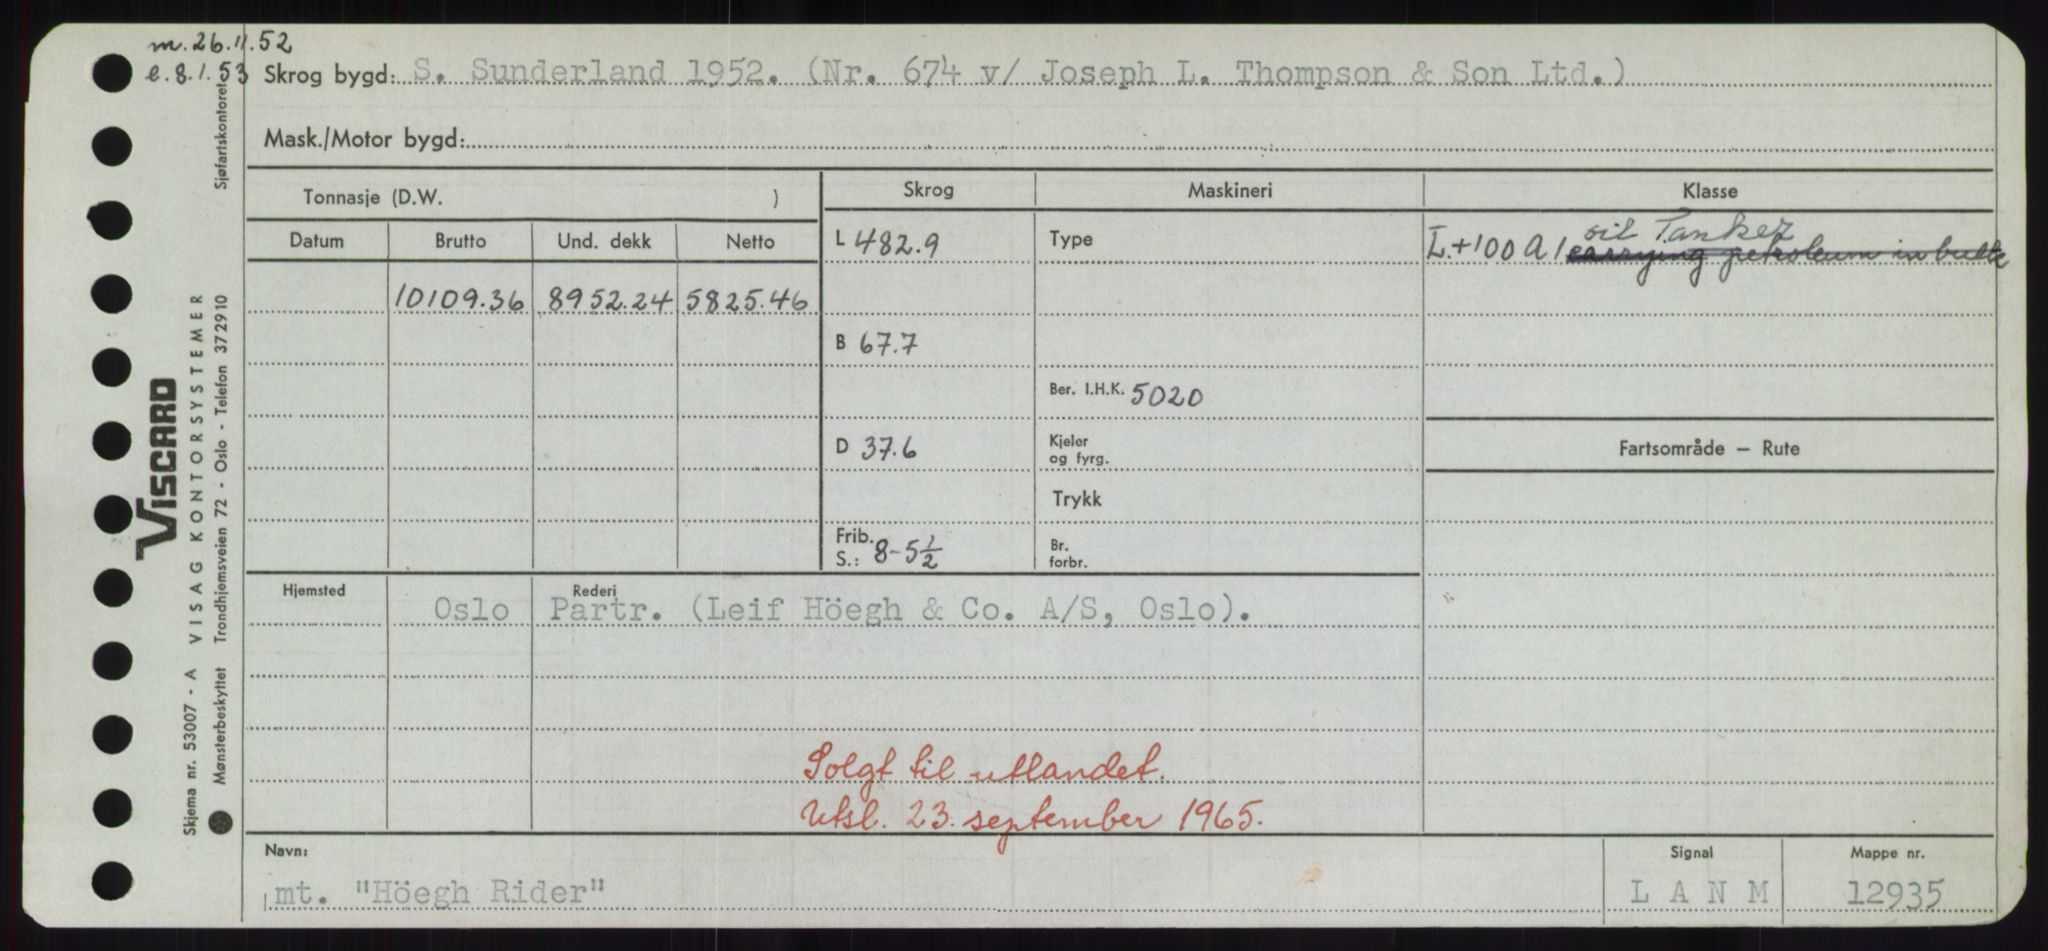 m. 26.11.52
e. 8.1.53
Skrog bygd: S. Sunderland 1952. (Nr. 674 v/ Joseph L. Thompson & Son Ltd.)
Mask./Motor bygd:
Tonnasje (D.W. )
Datum Brutto Und. dekk Netto
10109.36 8952.24 5825.46
Skrog Maskineri Klasse
L 482.9 Type
oil Tanker
I.+100 A1 carrying petroleum in bulk
B 67.7
Ber. I.H.K. 5020
D 37.6 Kjeler og fyrg.
Fartsområde — Rute
Trykk
Frib. S.: 8-5½ Br. forbr.
Hjemsted Rederi
Oslo Partr. (Leif Höegh & Co. A/S, Oslo).
Solgt til utlandet.
Utsl. 23. september 1965.
Navn: Signal Mappe nr.
mt. "Höegh Rider" L A N M 12935
Skjema nr. 53007 - A VISAG KONTORSYSTEMER
VISCARD
Mønsterbeskyttet Trondhjemsveien 72 - Oslo - Telefon 372910
Sjøfartskontoret